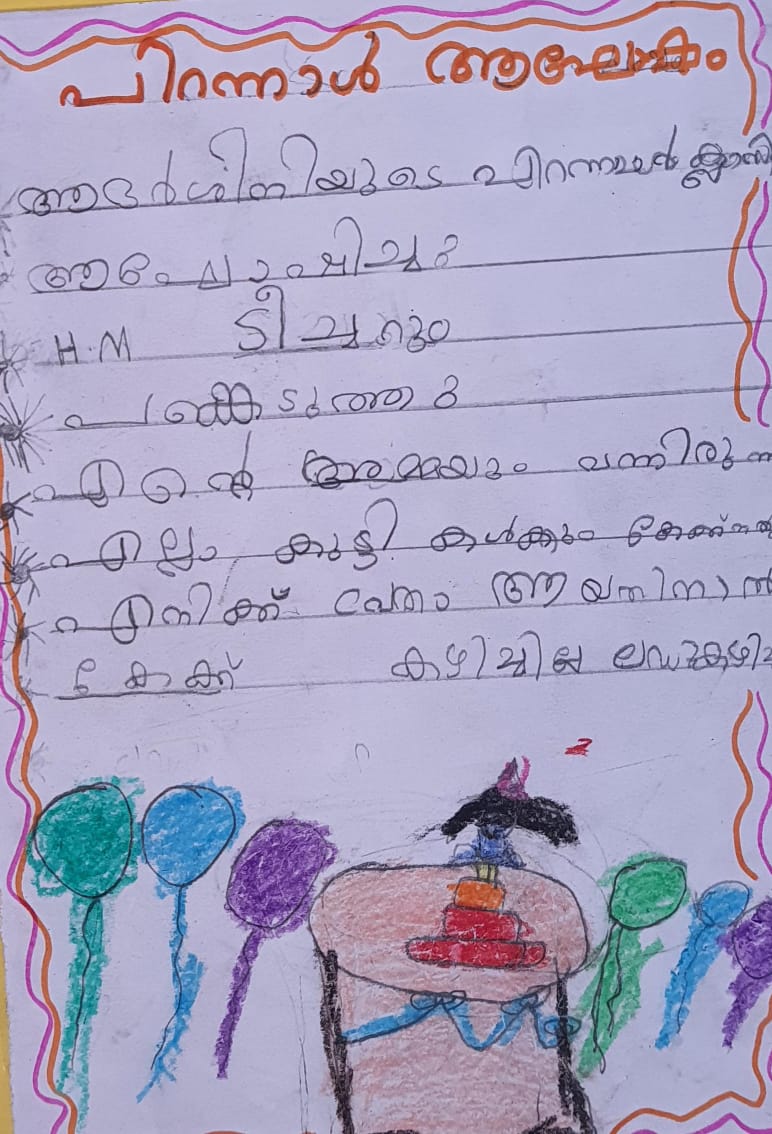 പിറന്നാൾ ആഘോഷം
ആദർശിനിയുടെ പിറന്നാൾ ക്ലാസി
ആഘോഷിച്ചു
H.M ടീച്ചറും
പങ്കെടുത്തു
എന്റെ അമ്മയും വന്നിരുന്ന
എല്ലാ കുട്ടി കൾക്കും കേക്ക്
എനിക്ക് പനി ആയതിനാൽ
കേക്ക് കഴിച്ചില്ല ലഡു കഴിച